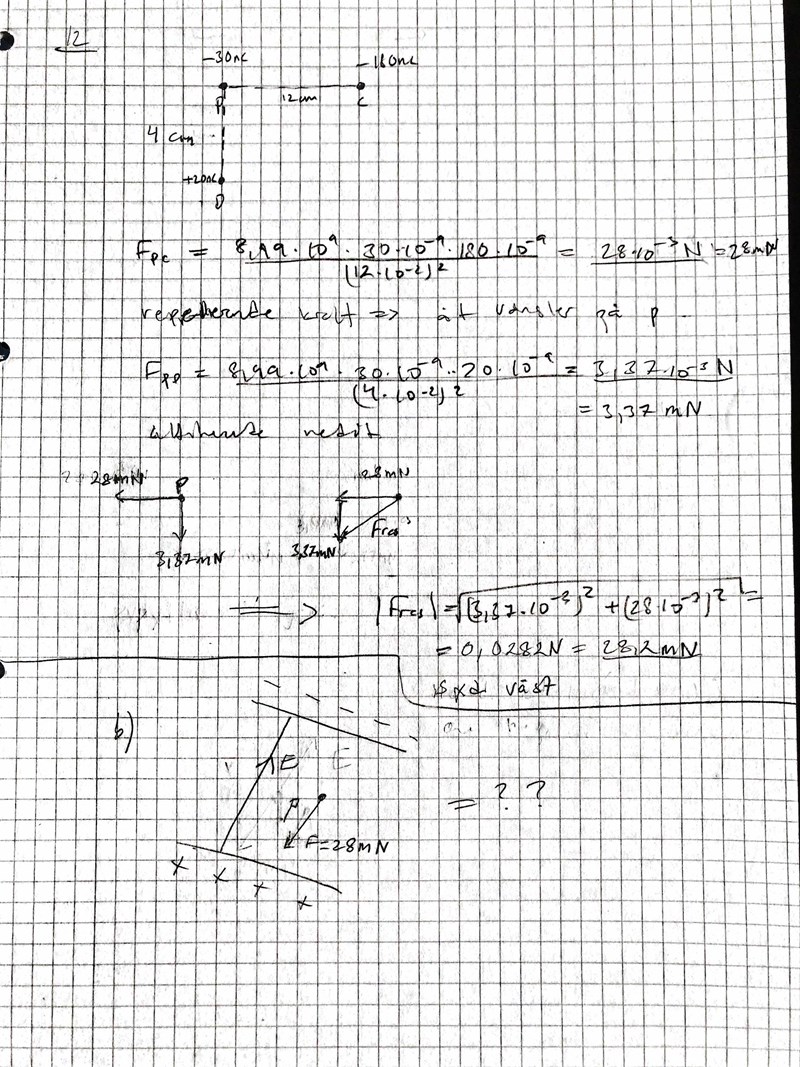 12
-30nC -180nC
P 12cm C
4 cm
+20nC
D
Fpc = 8,99·10⁹·30·10⁻⁹·180·10⁻⁹ / (12·10-2)² = 28·10⁻³N = 28mN
repellerande kraft => åt vänster på p
FpD = 8,99·10⁹·30·10⁻⁹·20·10⁻⁹ / (4·10-2)² = 3,37·10⁻³ N
= 3,37 mN
nedåt
28mN P 28mN
3,37mN 3,37mN Fres
=> |Fres| = √(3,37·10⁻³)² + (28·10⁻³)² =
= 0,0282N = 28,2mN
syd väst
b)
- - - - -
E E
P = ? ?
F=28mN
+ + + +